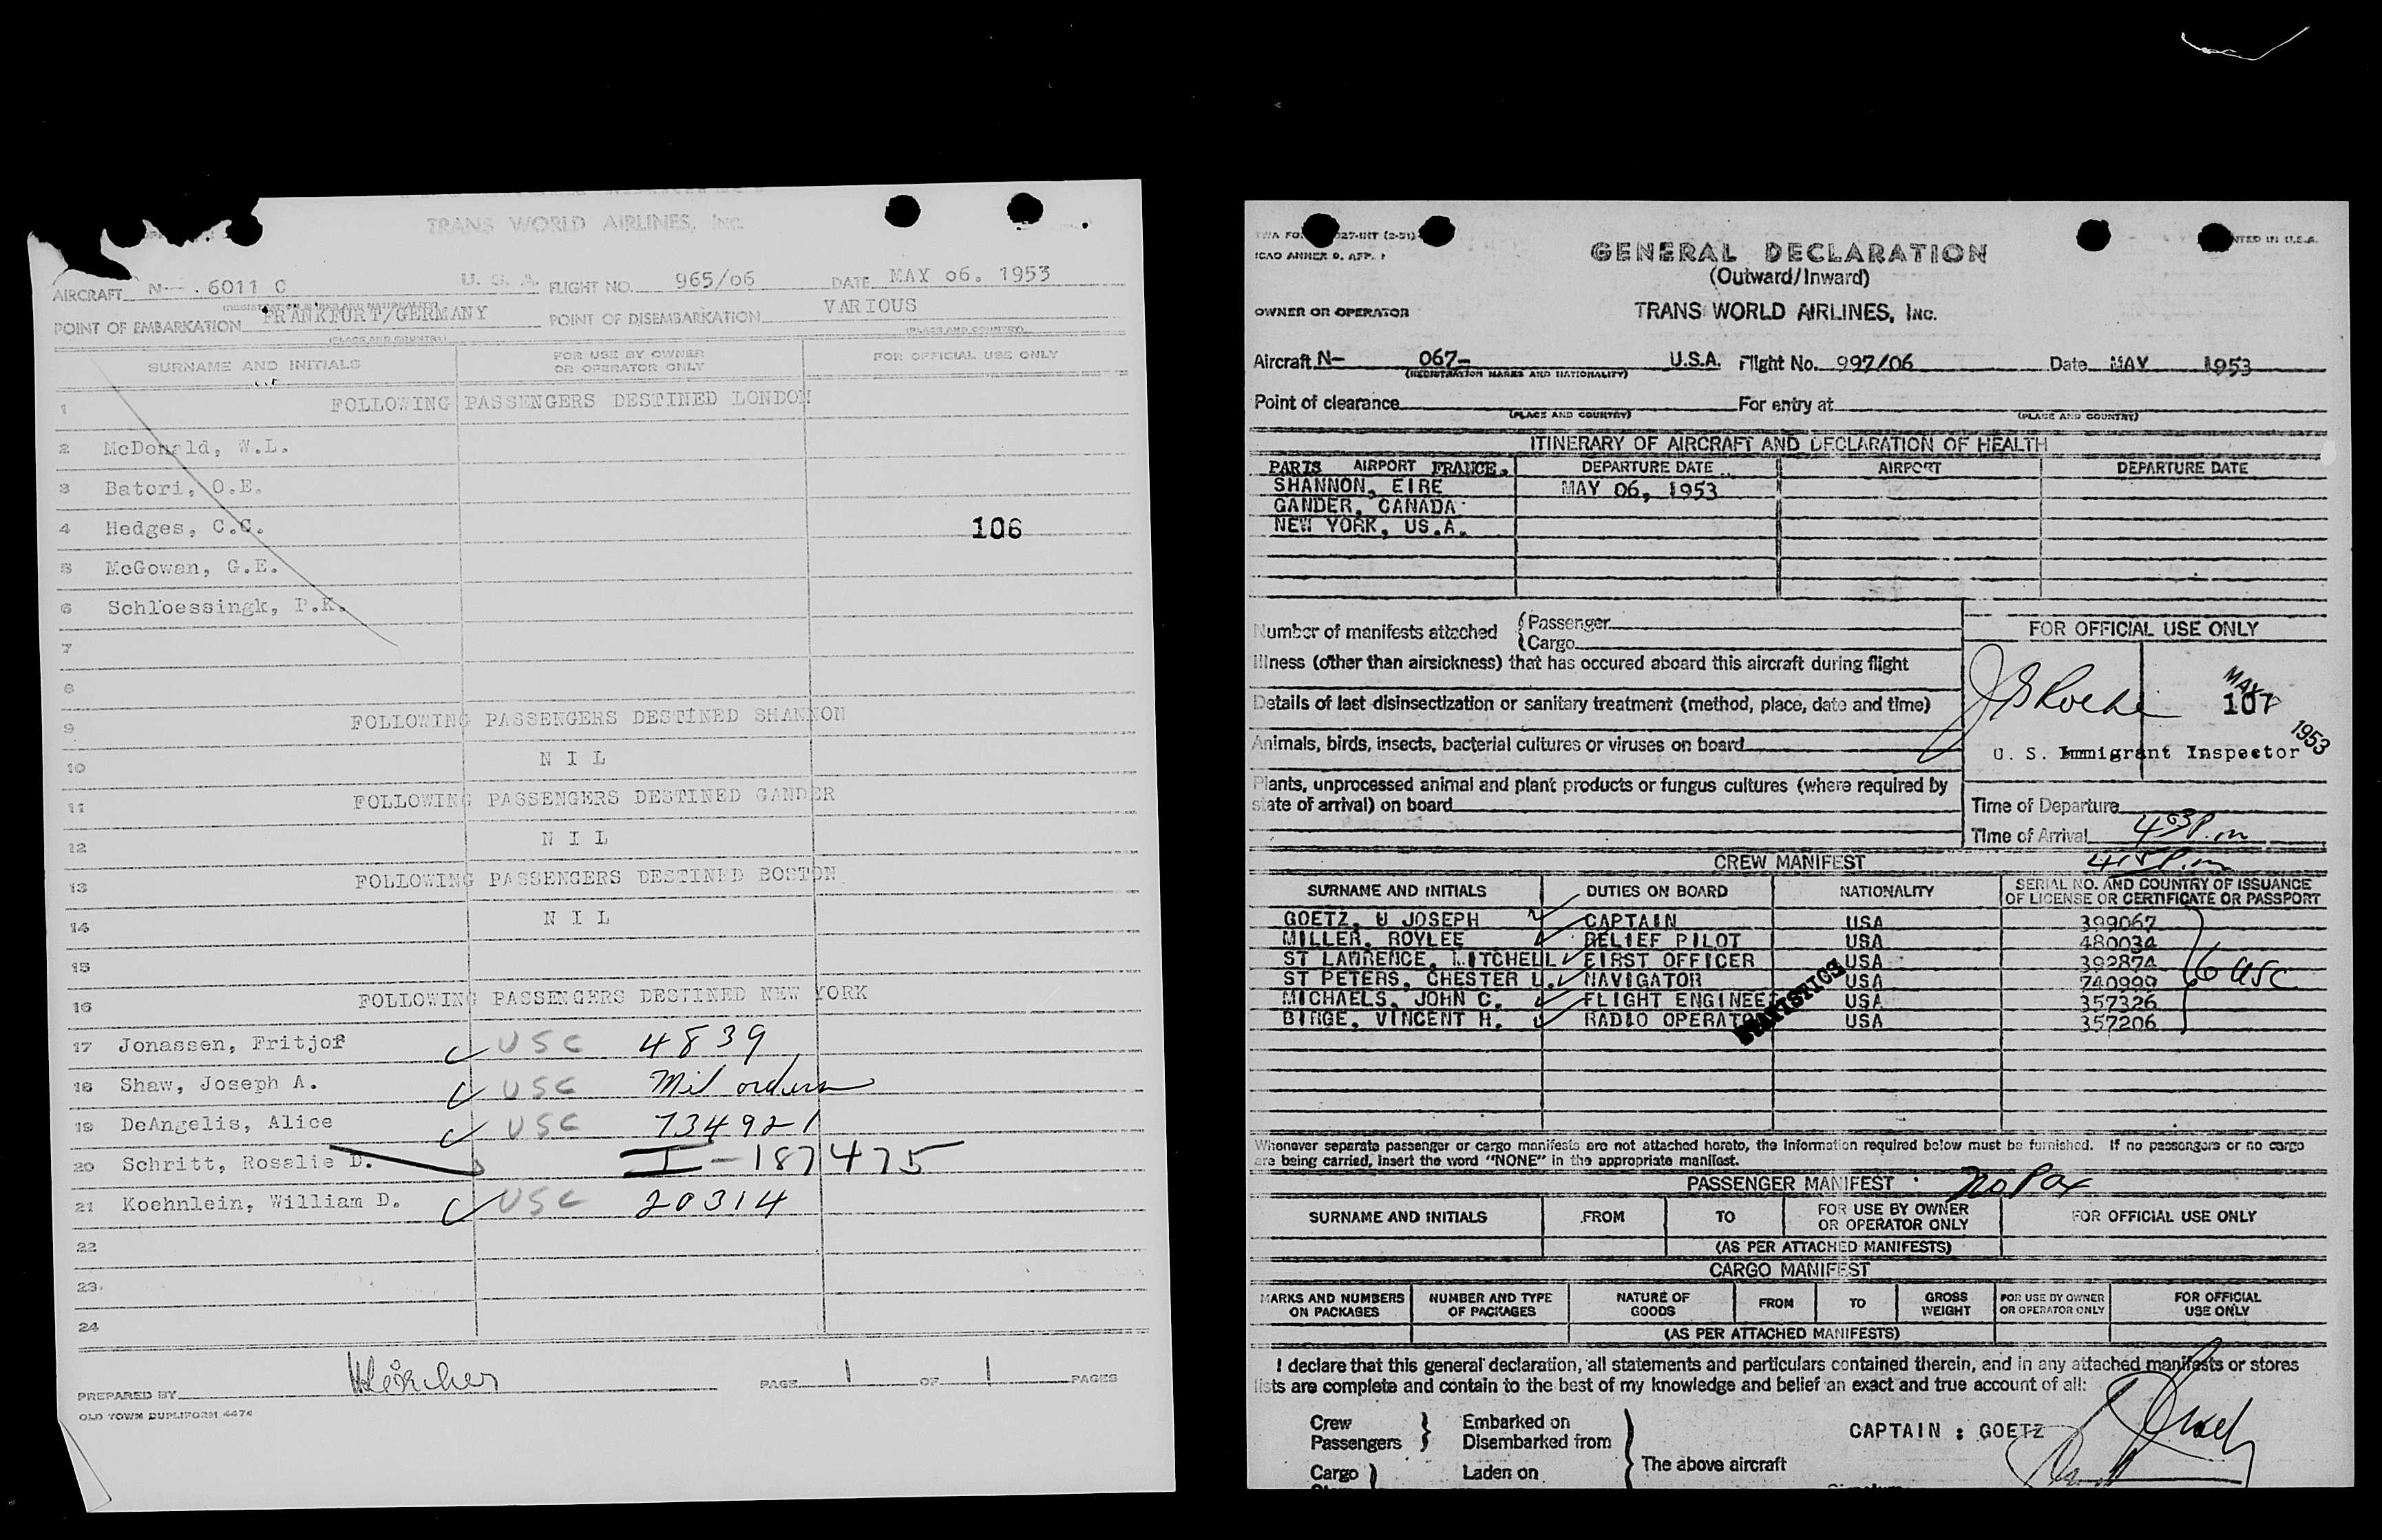 TRANS WORLD AIRLINES, INC.
AIRCRAFT N- 6011 C U. S. A. FLIGHT NO. 965/06 DATE MAY 06. 1953
(REGISTRATION MARKS AND NATIONALITY)
POINT OF EMBARKATION FRANKFURT/GERMANY POINT OF DISEMBARKATION VARIOUS
(PLACE AND COUNTRY) (PLACE AND COUNTRY)
SURNAME AND INITIALS FOR USE BY OWNER OR OPERATOR ONLY FOR OFFICIAL USE ONLY
1 FOLLOWING PASSENGERS DESTINED LONDON
2 McDonald, W.L.
3 Batori, O.E.
4 Hedges, C.C. 106
5 McGowan, G.E.
6 Schloessingk, P.K.
7
8
9 FOLLOWING PASSENGERS DESTINED SHANNON
10 N I L
11 FOLLOWING PASSENGERS DESTINED GANDER
12 N I L
13 FOLLOWING PASSENGERS DESTINED BOSTON
14 N I L
15
16 FOLLOWING PASSENGERS DESTINED NEW YORK
17 Jonassen, Fritjof USC 4839
18 Shaw, Joseph A. USC Mil orders
19 DeAngelis, Alice USC 734921
20 Schritt, Rosalie D. I-187475
21 Koehnlein, William D. USC 20314
22
23
24
PREPARED BY PAGE 1 OF 1 PAGES
OLD TOWN DUPLIFORM 4474
TWA FO 027-INT (2-51) NTED IN U.S.A.
ICAO ANNEX 9, APP. 1
GENERAL DECLARATION
(Outward/Inward)
OWNER OR OPERATOR TRANS WORLD AIRLINES, INC.
Aircraft N- 067- U.S.A. Flight No. 997/06 Date MAY 1953
(REGISTRATION MARKS AND NATIONALITY)
Point of clearance For entry at
(PLACE AND COUNTRY) (PLACE AND COUNTRY)
ITINERARY OF AIRCRAFT AND DECLARATION OF HEALTH
PARIS AIRPORT FRANCE. DEPARTURE DATE AIRPORT DEPARTURE DATE
SHANNON, EIRE MAY 06, 1953
GANDER, CANADA
NEW YORK, US.A.
Number of manifests attached {Passenger
{Cargo
FOR OFFICIAL USE ONLY
Illness (other than airsickness) that has occured aboard this aircraft during flight
MAY
107
1953
Details of last disinsectization or sanitary treatment (method, place, date and time)
Animals, birds, insects, bacterial cultures or viruses on board
U. S. Immigrant Inspector
Plants, unprocessed animal and plant products or fungus cultures (where required by
state of arrival) on board
Time of Departure
Time of Arrival 4 03 P.m
CREW MANIFEST
SURNAME AND INITIALS DUTIES ON BOARD NATIONALITY SERIAL NO. AND COUNTRY OF ISSUANCE OF LICENSE OR CERTIFICATE OR PASSPORT
GOETZ, U JOSEPH CAPTAIN USA 399067
MILLER, ROYLEE RELIEF PILOT USA 480034
ST LAWRENCE, MITCHELL FIRST OFFICER USA 392874
ST PETERS, CHESTER U. NAVIGATOR USA 740999 6 USC
MICHAELS, JOHN C. FLIGHT ENGINEE USA 357326
BIRGE, VINCENT H. RADIO OPERATO USA 357206
STATISTICS
Whenever separate passenger or cargo manifests are not attached hereto, the information required below must be furnished. If no passengers or no cargo
are being carried, insert the word "NONE" in the appropriate manifest.
PASSENGER MANIFEST No Pax
SURNAME AND INITIALS FROM TO FOR USE BY OWNER OR OPERATOR ONLY FOR OFFICIAL USE ONLY
(AS PER ATTACHED MANIFESTS)
CARGO MANIFEST
MARKS AND NUMBERS ON PACKAGES NUMBER AND TYPE OF PACKAGES NATURE OF GOODS FROM TO GROSS WEIGHT FOR USE BY OWNER OR OPERATOR ONLY FOR OFFICIAL USE ONLY
(AS PER ATTACHED MANIFESTS)
I declare that this general declaration, all statements and particulars contained therein, and in any attached manifests or stores
lists are complete and contain to the best of my knowledge and belief an exact and true account of all:
Crew Embarked on
Passengers Disembarked from
CAPTAIN : GOETZ
Cargo Laden on The above aircraft